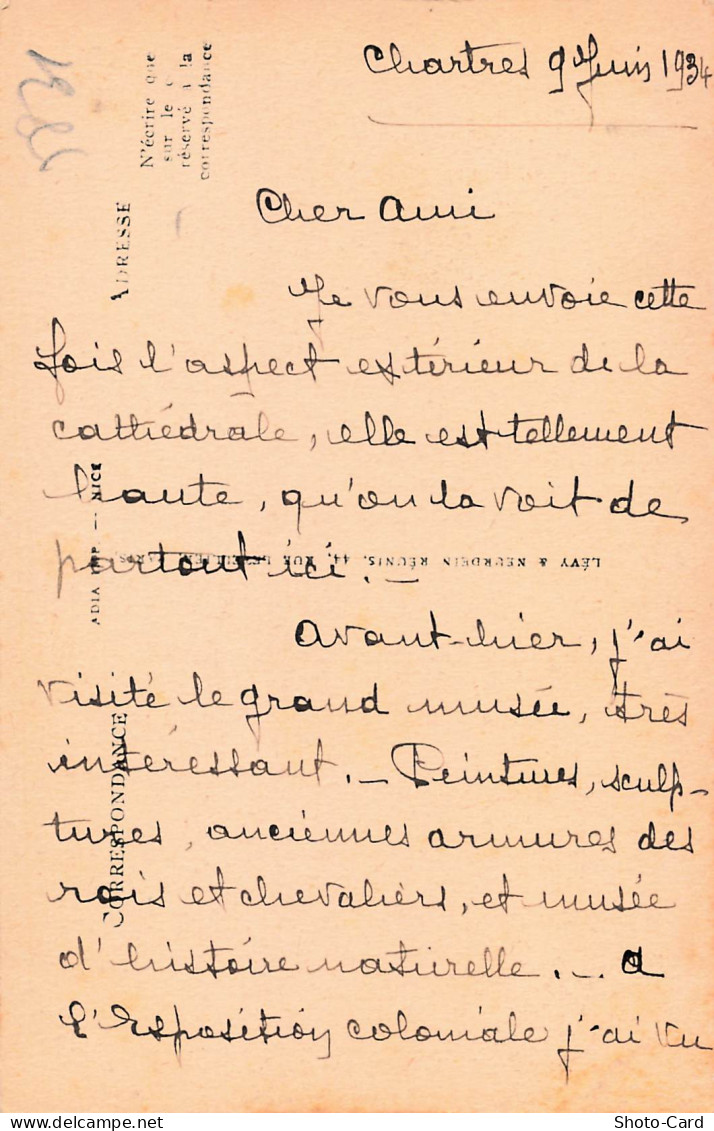 Chartres 9 Juin 1934
Cher Ami
Je vous envoie cette
fois l'aspect extérieur de la
cathédrale, elle est tellement
haute, qu'on la voit de
partout ici. —
Avant-hier, j'ai
visité le grand musée, très
intéressant. — Peintures, sculp-
tures, anciennes armures des
rois et chevaliers, et musée
d'histoire naturelle. — A
l'Exposition coloniale j'ai vu
N'écrire que
sur le
réservé à la
correspondance
ADRESSE
CORRESPONDANCE
ADIA — NICE
LÉVY & NEURDEIN RÉUNIS, 44, RUE
delcampe.net
Shoto-Card